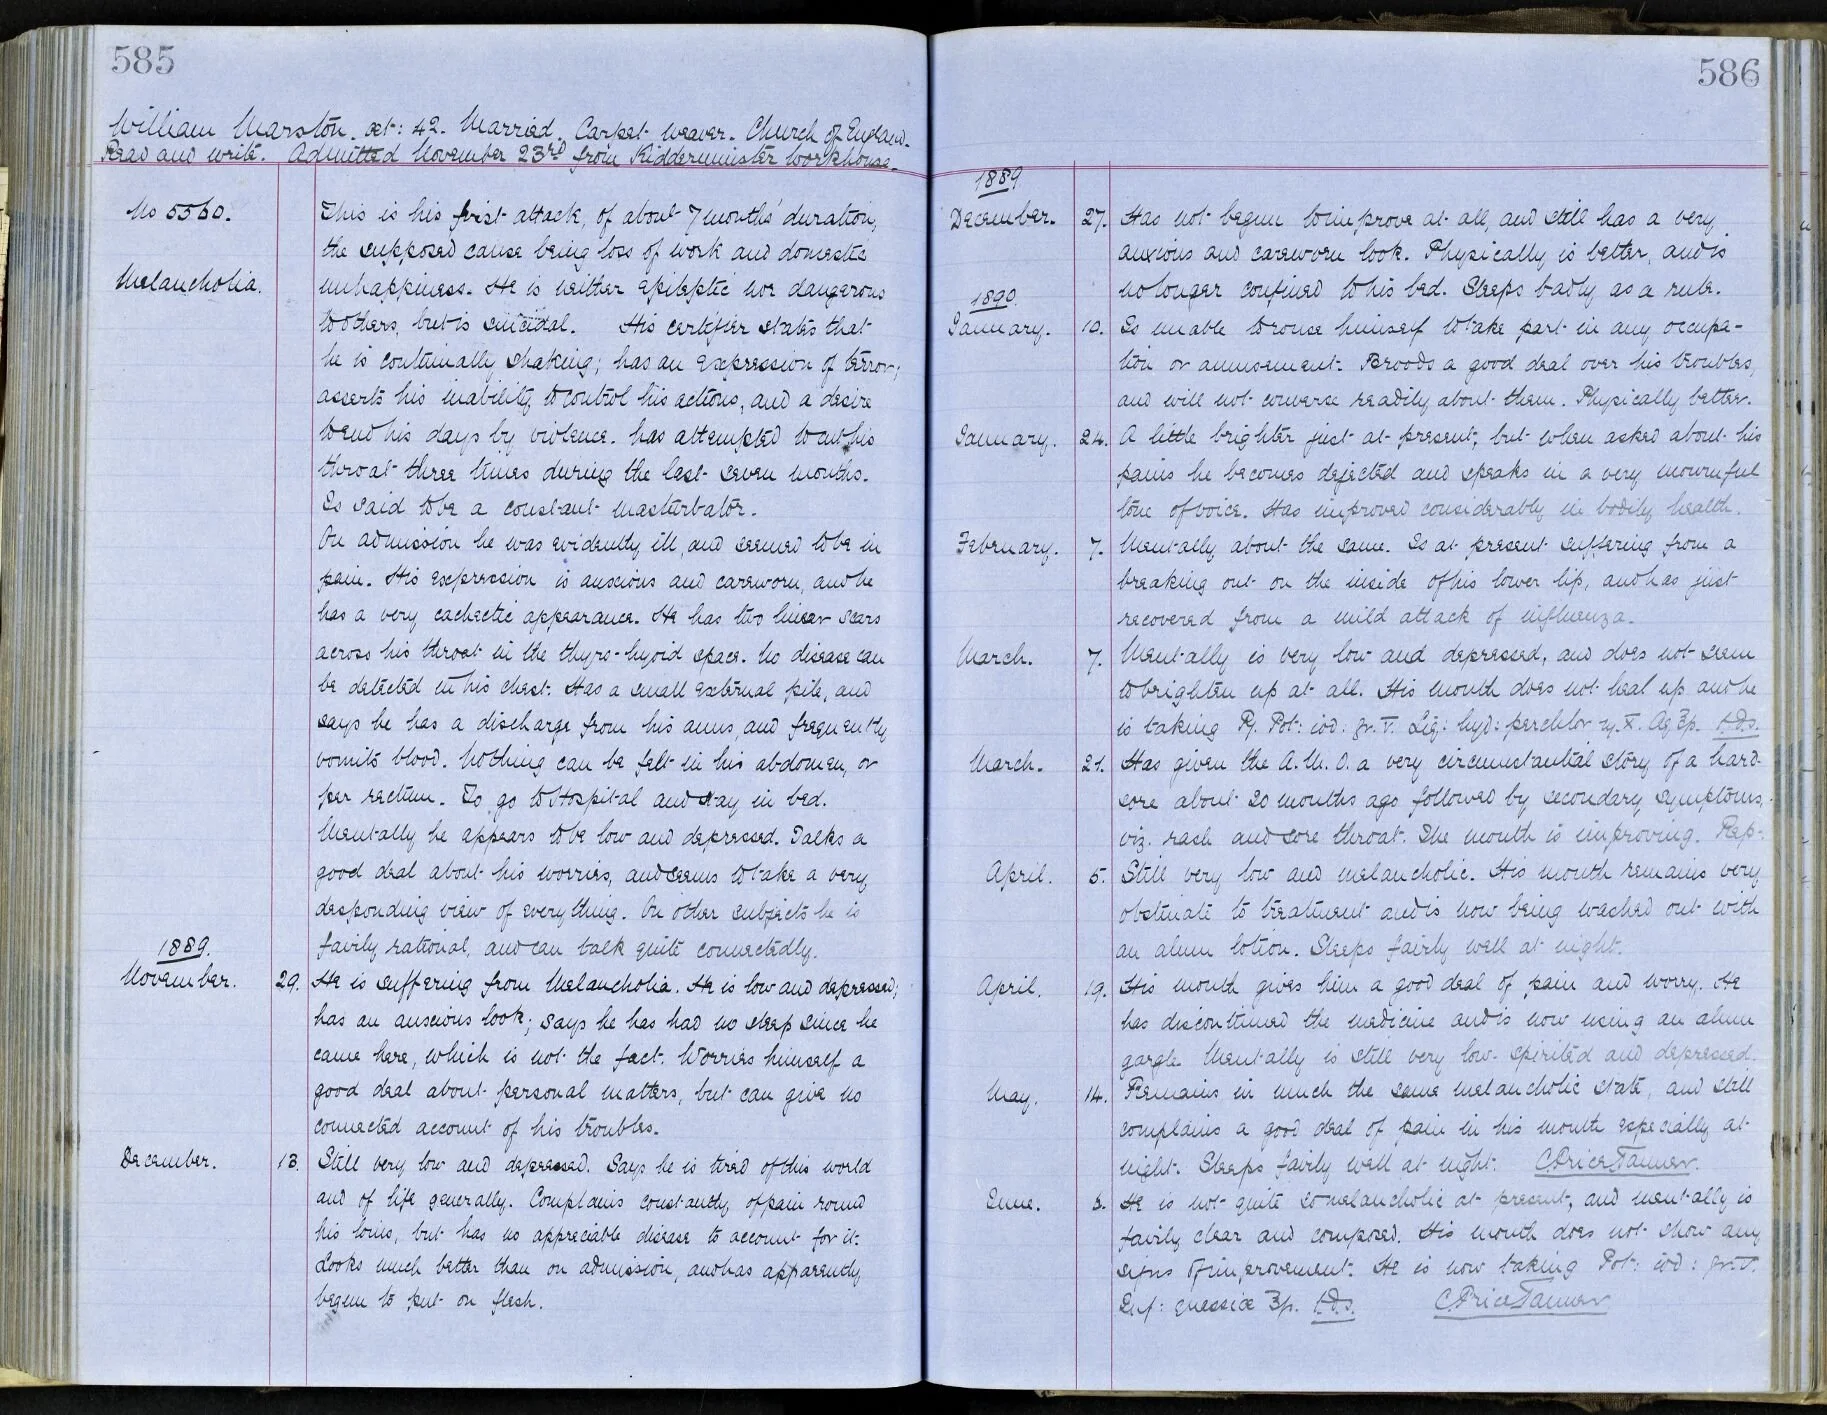 585
William Marston. æt: 42. Married. Carpet weaver. Church of England.
Read and write. Admitted November 23rd from Kidderminster Workhouse.
No 5560.
Melancholia.
This is his first attack, of about 7 months' duration,
the supposed cause being loss of work and domestic
unhappiness. He is neither epileptic nor dangerous
to others, but is suicidal. His certifier states that
he is continually shaking; has an expression of terror;
asserts his inability to control his actions, and a desire
to end his days by violence. has attempted to cut his
throat three times during the last seven months.
Is said to be a constant masturbator.
On admission he was evidently ill, and seemed to be in
pain. His expression is anxious and careworn, and he
has a very cachectic appearance. He has two linear scars
across his throat in the thyro-hyoid space. No disease can
be detected in his chest. Has a small external pile, and
says he has a discharge from his anus, and frequently
vomits blood. Nothing can be felt in his abdomen, or
per rectum. To go to Hospital and stay in bed.
Mentally he appears to be low and depressed. Talks a
good deal about his worries, and seems to take a very
desponding view of everything. On other subjects he is
fairly rational, and can talk quite connectedly.
1889.
November. 29. He is suffering from Melancholia. He is low and depressed;
has an anxious look; says he has had no sleep since he
came here, which is not the fact. Worries himself a
good deal about personal matters, but can give no
connected account of his troubles.
December. 13. Still very low and depressed. Says he is tired of this world
and of life generally. Complains constantly of pain round
his loins, but has no appreciable disease to account for it.
Looks much better than on admission, and has apparently
begun to put on flesh.
586
1889
December. 27. Has not begun to improve at all, and still has a very
anxious and careworn look. Physically is better, and is
no longer confined to his bed. Sleeps badly as a rule.
1890.
January. 10. Is unable to rouse himself to take part in any occupa-
tion or amusement. Broods a good deal over his troubles,
and will not converse readily about them. Physically better.
January. 24. A little brighter just at present, but when asked about his
pains he becomes dejected and speaks in a very mournful
tone of voice. Has improved considerably in bodily health.
February. 7. Mentally about the same. Is at present suffering from a
breaking out on the inside of his lower lip, and has just
recovered from a mild attack of influenza.
March. 7. Mentally is very low and depressed, and does not seem
to brighten up at all. His mouth does not heal up and he
is taking Rx. Pot: iod: gr. V. Liq: hyd: perchlor ℳ. X. Aq ℥p. t.d.s.
March. 21. Has given the A.M.O. a very circumstantial story of a hard
sore about 20 months ago followed by secondary symptoms,
viz. rash and sore throat. The mouth is improving. Rep:
April. 5. Still very low and melancholic. His mouth remains very
obstinate to treatment and is now being washed out with
an alum lotion. Sleeps fairly well at night.
April. 19. His mouth gives him a good deal of pain and worry. He
has discontinued the medicine and is now using an alum
gargle. Mentally is still very low-spirited and depressed.
May. 14. Remains in much the same melancholic state, and still
complains a good deal of pain in his mouth especially at
night. Sleeps fairly well at night. C Price Tanner.
June. 3. He is not quite so melancholic at present, and mentally is
fairly clear and composed. His mouth does not show any
signs of improvement. He is now taking Pot: iod: gr. V.
Inf: quassiæ ℥p. t.d.s. C Price Tanner